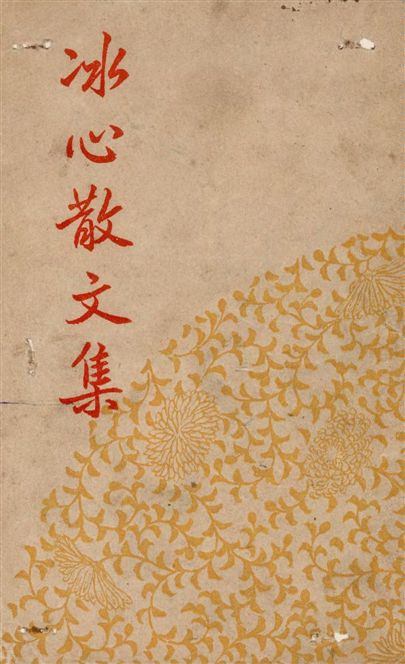 冰心散文集